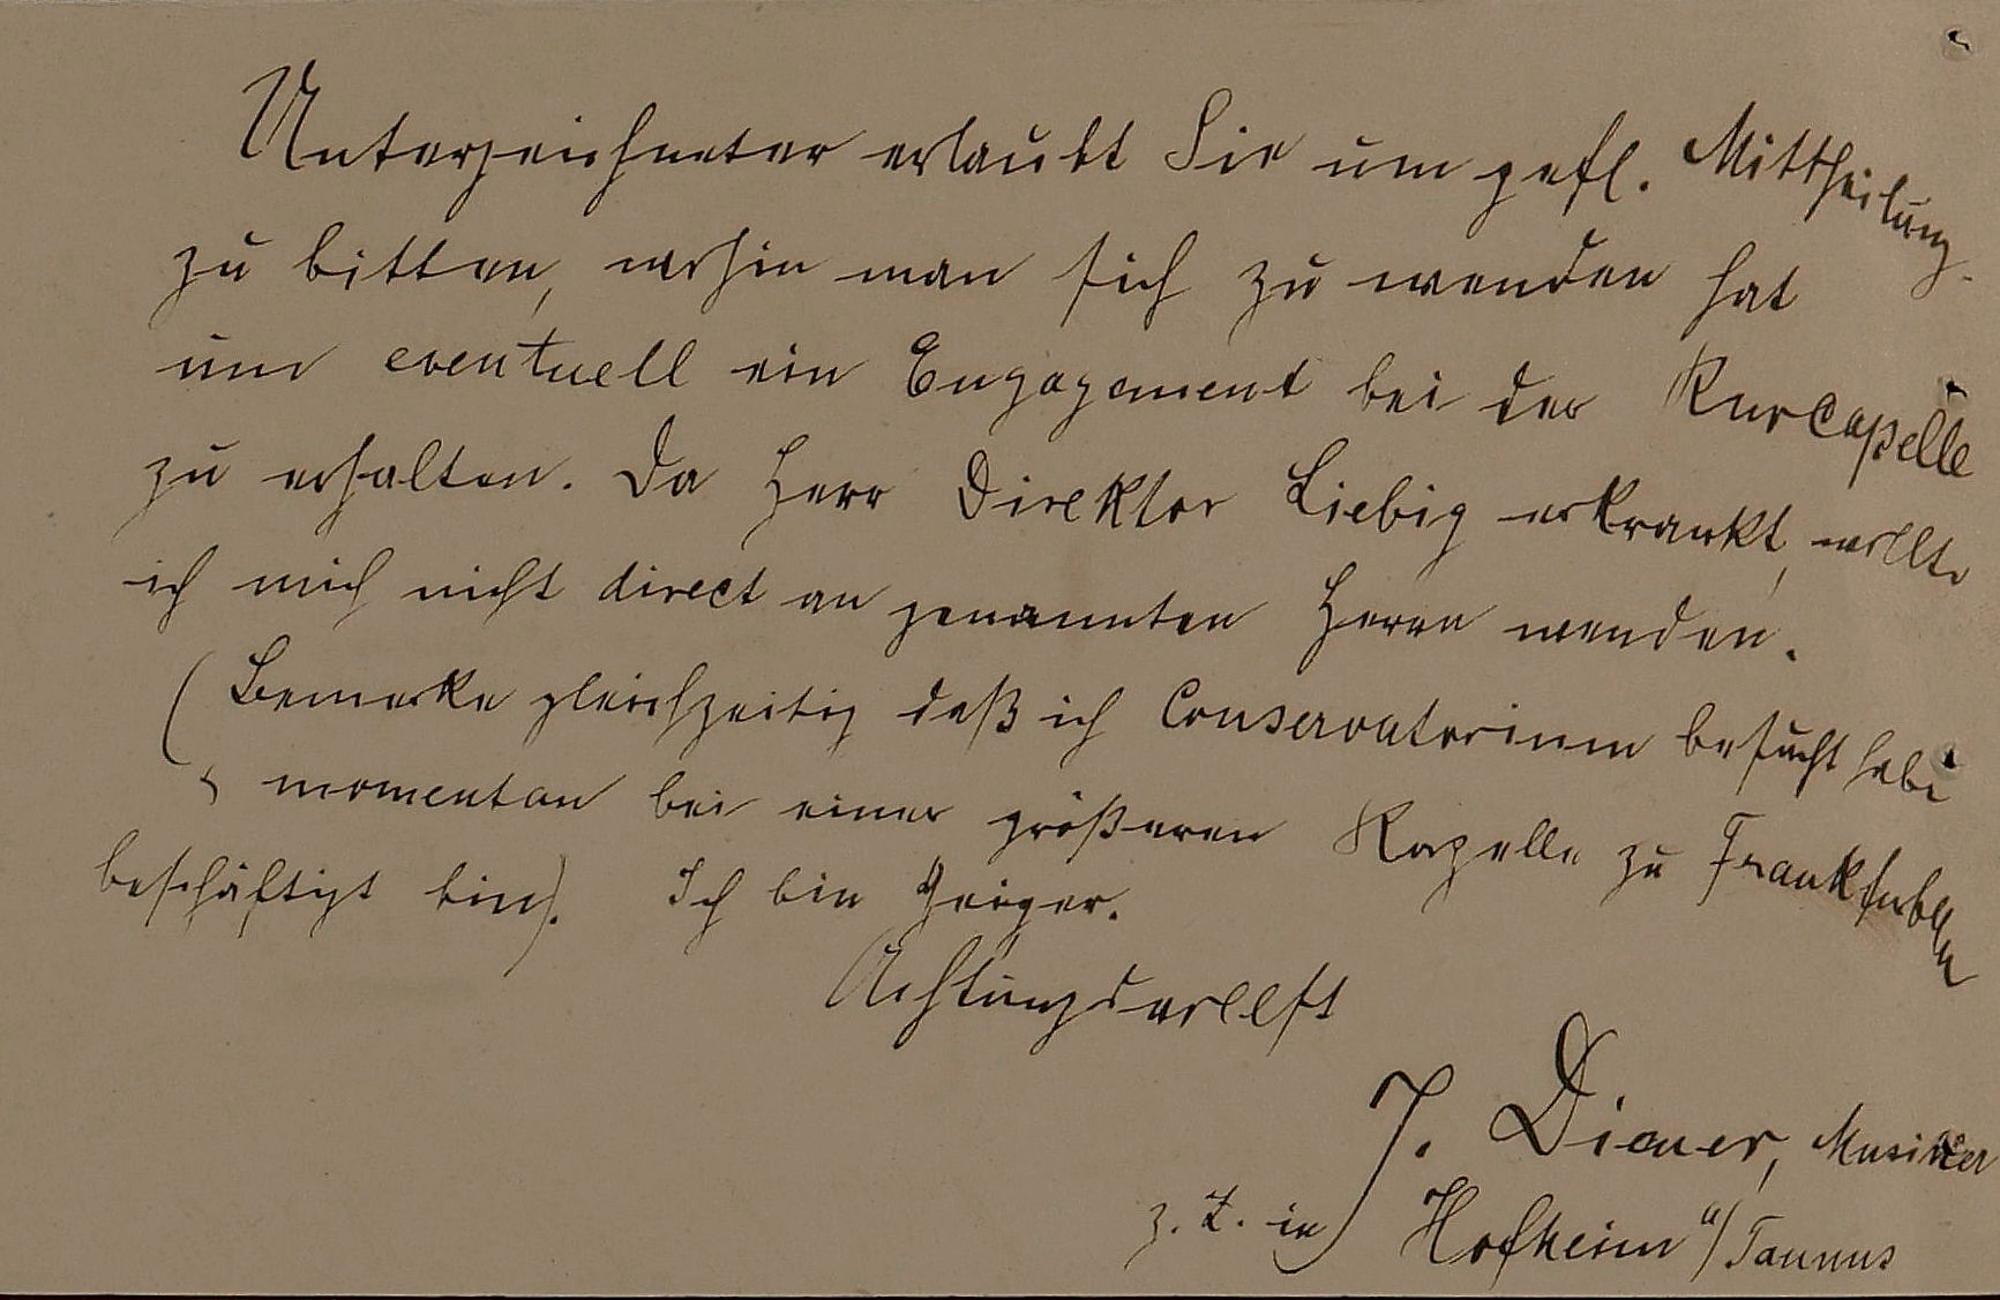 Unterzeichneter erlaubt Sie um gefl. Mittheilung
zu bitten, wohin man sich zu wenden hat
um eventuell ein Engagement bei der Kurcapelle
zu erhalten. Da Herr Direktor Liebig erkrankt, wollte
ich mich nicht direct an genannten Herrn wenden.
(Bemerke gleichzeitig daß ich Conservatorium besucht habe
momentan bei einer größeren Kapelle zu
beschäftigt bin). Ich bin Geiger.
Achtungsvollst
J. Diener, Musiker
z. Z. in Hofheim a/Taunus